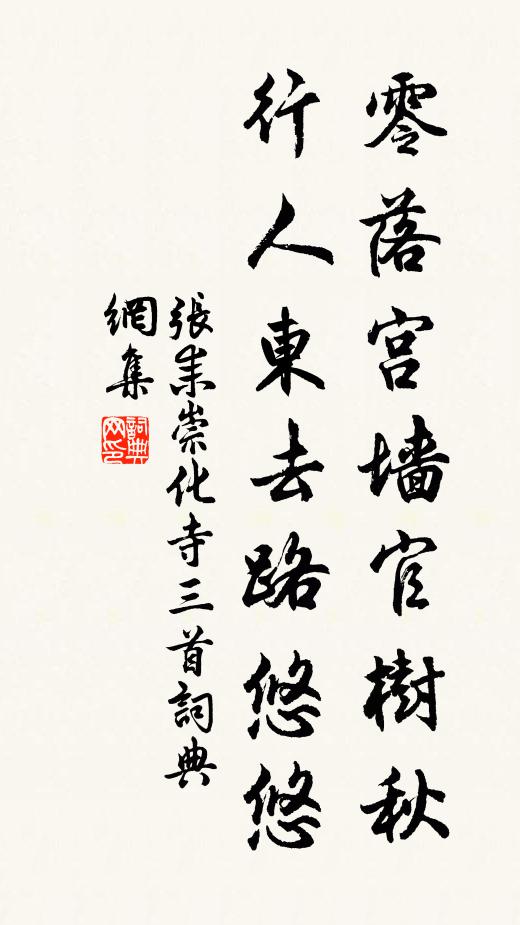 零落宫墙官樹秋
行人東去路悠悠
張耒崇化寺三首詞典
網集
詞典網印